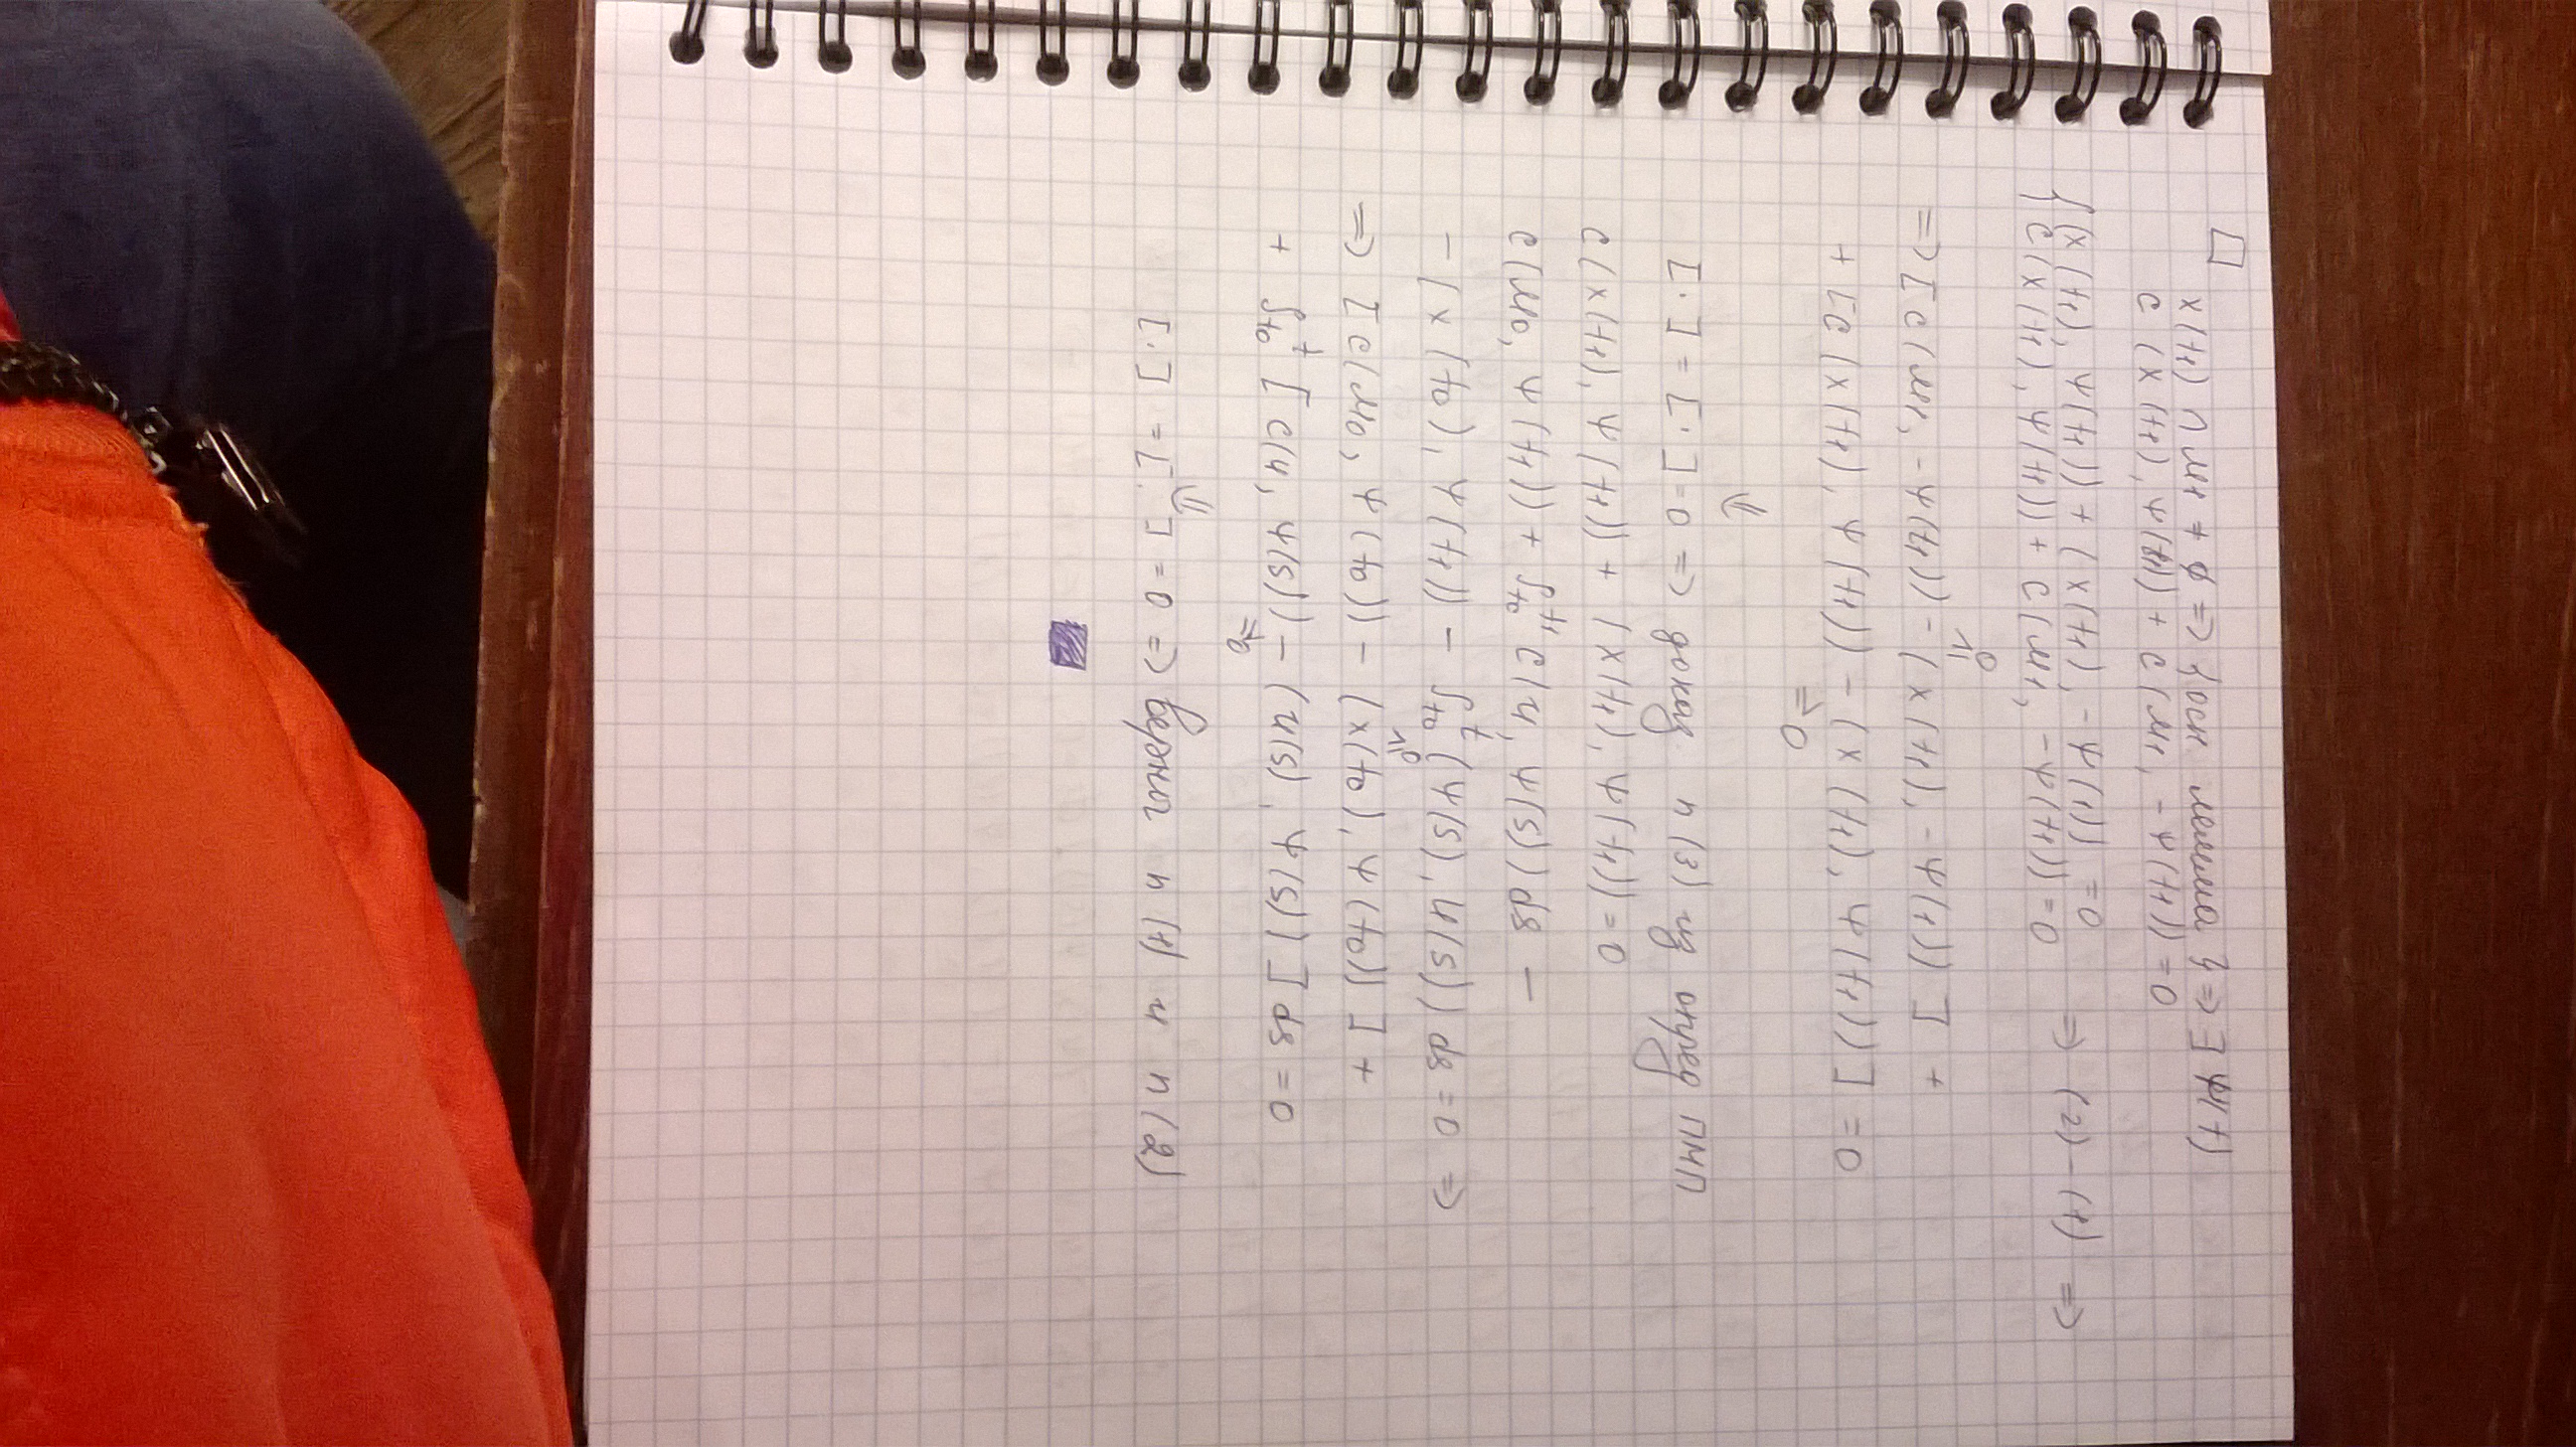 □
X(t₁) ∩ M₁ ≠ ∅ => {осн. лемма} => ∃ ψ(t)
c(X(t₁), ψ(t₁)) + c(M₁, -ψ(t₁)) = 0
{ (x(t₁), ψ(t₁)) + (x(t₁), -ψ(t₁)) = 0
{ c(X(t₁), ψ(t₁)) + c(M₁, -ψ(t₁)) = 0 => (2) - (1) =>
=> [c(M₁, -ψ(t₁)) - (x(t₁), -ψ(t₁))] +
≥ 0
+ [c(X(t₁), ψ(t₁)) - (x(t₁), ψ(t₁))] = 0
≥ 0
[·] = [·] = 0 => доказ. и (3) из опред ПМП
c(X(t₁), ψ(t₁)) + (x(t₁), ψ(t₁)) = 0
c(M₀, ψ(t₁)) + ∫ₜ₀ᵗ¹ c(U, ψ(s)) ds -
- (x(t₀), ψ(t₁)) - ∫ₜ₀ᵗ (ψ(s), u(s)) ds = 0 =>
=> [c(M₀, ψ(t₀)) - (x(t₀), ψ(t₀))] +
≥ 0
+ ∫ₜ₀ᵗ [c(U, ψ(s)) - (u(s), ψ(s))] ds = 0
≥ 0
[·] = [·] = 0 => верны и (1) и и (2)
■